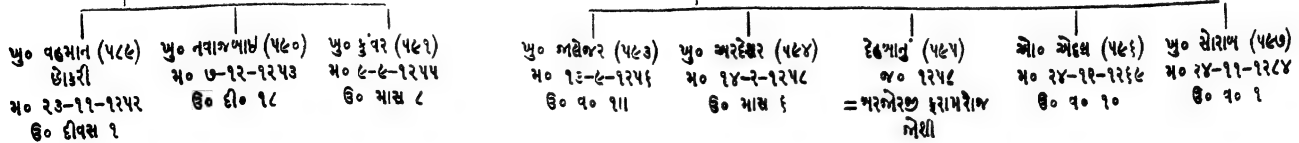 ખુ૦ વહમાન (૫૮૯)
છોકરી
મ૦ ૨૩-૧૧-૧૨૫૨
ઉ૦ દીવસ ૧
ખુ૦ નવાજબાઇ (૫૯૦)
મ૦ ૭-૧૨-૧૨૫૩
ઉ૦ દી૦ ૧૮
ખુ૦ કુંવર (૫૯૧)
મ૦ ૯-૯-૧૨૫૫
ઉ૦ માસ ૮
ખુ૦ જાલેજર (૫૯૩)
મ૦ ૧૬-૯-૧૨૫૬
ઉ૦ વ૦ ૧॥
ખુ૦ અરદેશર (૫૯૪)
મ૦ ૧૪-૨-૧૨૫૮
ઉ૦ માસ ૬
દેહબાનુ (૫૯૫)
જ૦ ૧૨૫૮
= બરજોરજી ફરામરોજ
જોશી
ઓ૦ એદલ (૫૯૬)
મ૦ ૨૪-૧૧-૧૨૬૯
ઉ૦ વ૦ ૧૦
ખુ૦ સોરાબ (૫૯૭)
મ૦ ૨૪-૧૧-૧૨૮૪
ઉ૦ વ૦ ૧